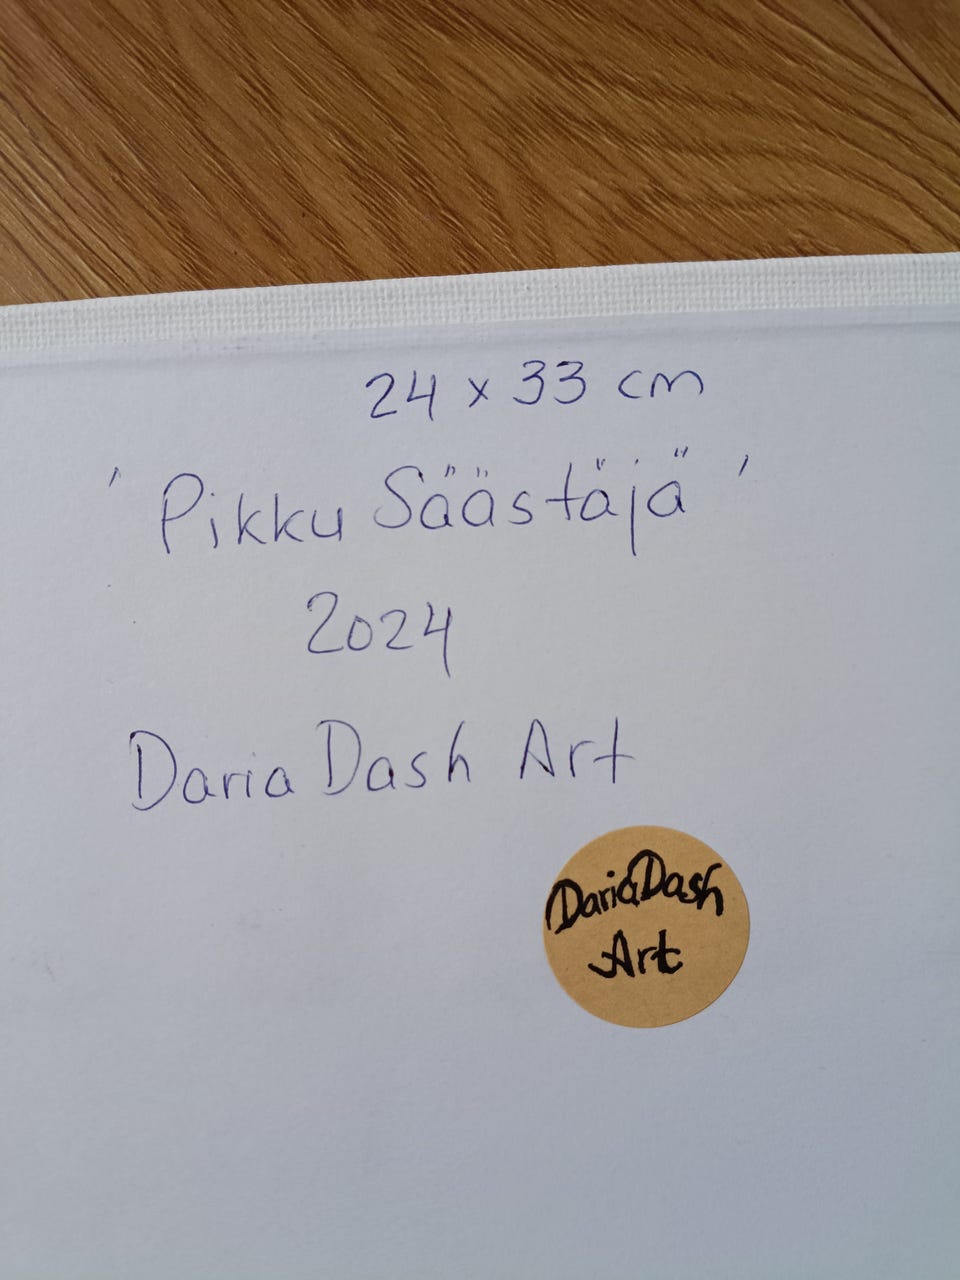 24 x 33 cm
' Pikku Säästäjä '
2024
Daria Dash Art
DariaDash
Art